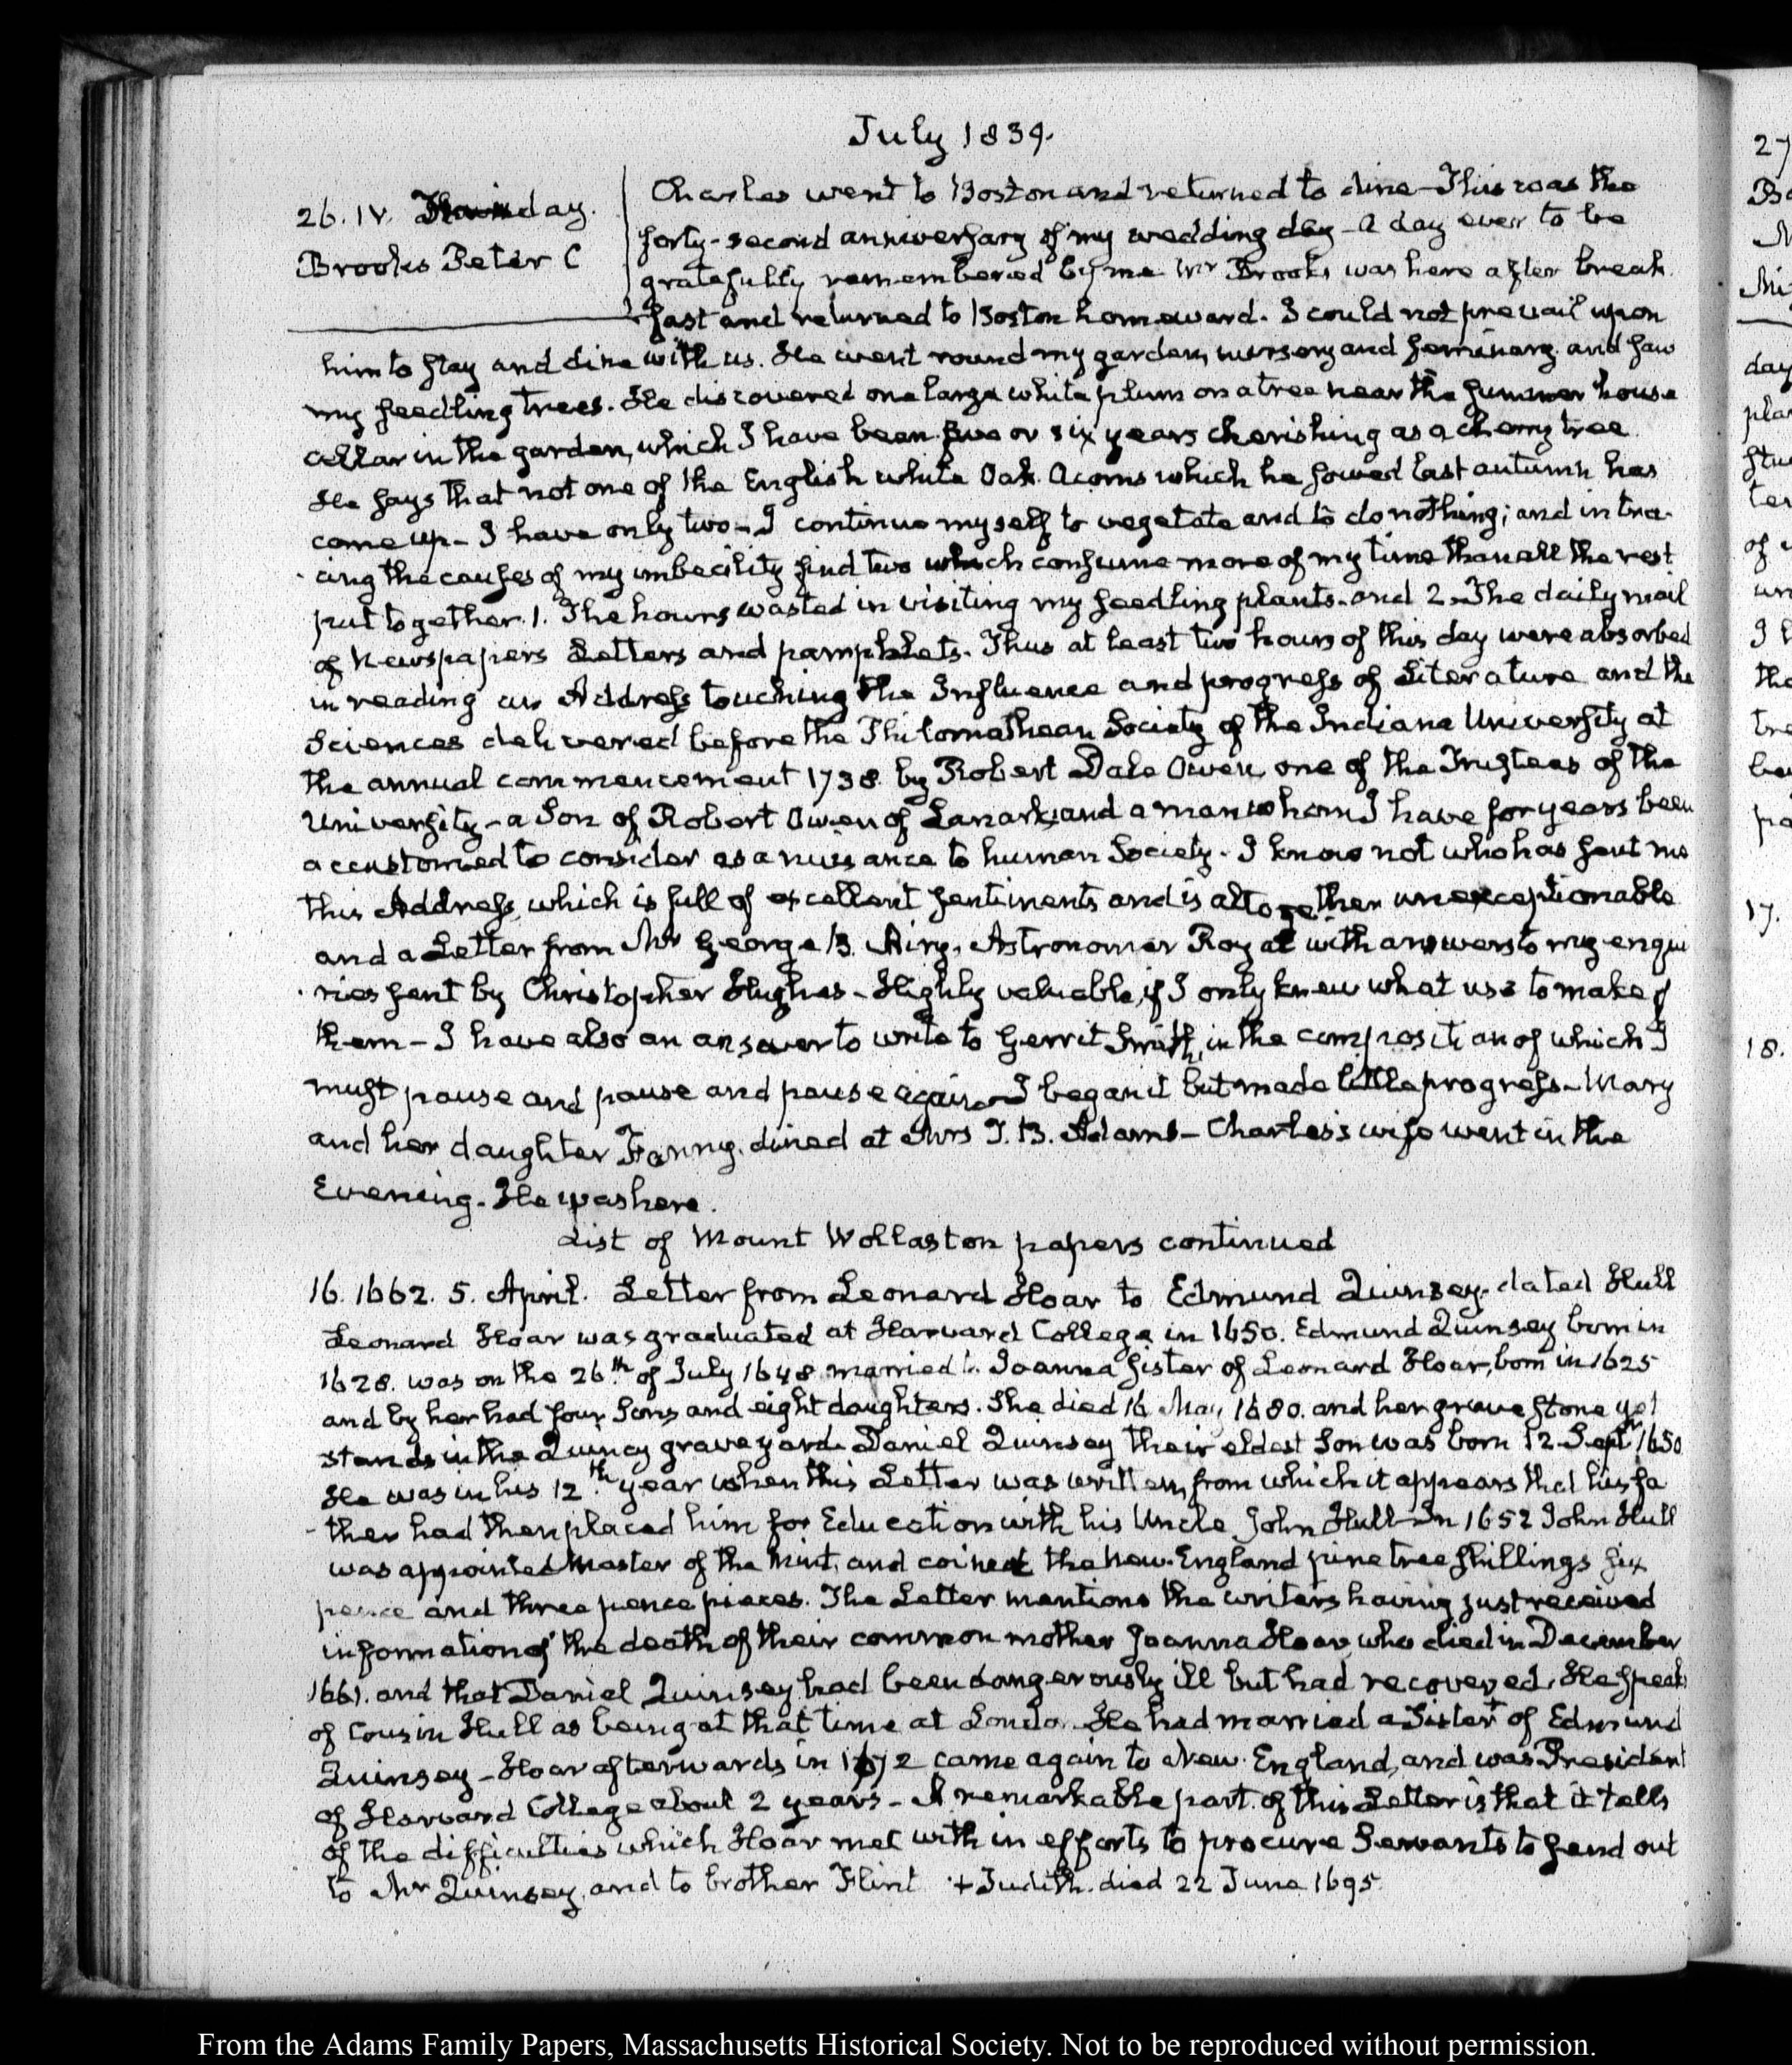 July 1839.
26. IV. day.
Brooks Peter C
Charles went to Boston and returned to dine – This was the
forty-second anniversary of my wedding day – a day ever to be
gratefully remembered by me Mr Brooks was here after break
fast and returned to Boston homeward. I could not prevail upon
him to stay and dine with us. He went round my garden, nursery and seminary and saw
my seedling trees. He discovered one large white plum on a tree near the summer house
cellar in the garden, which I have been five or six years cherishing as a cherry tree.
He says that not one of the English white Oak Acorns which he sowed last autumn has
come up – I have only two – I continue myself to vegetate and to do nothing; and in tra-
cing the causes of my imbecility find two which consume more of my time than all the rest
put together. 1. The hours wasted in visiting my seedling plants. and 2. The daily mail
of Newspapers Letters and pamphlets. Thus at least two hours of this day were absorbed
in reading an Address touching the Influence and progress of Literature and the
Sciences delivered before the Philomathean Society of the Indiana University at
the annual commencement 1738 by Robert Dale Owen, one of the Trustees of the
University – a Son of Robert Owen of Lanark, and a man whom I have for years been
accustomed to consider as a nuisance to human Society. I know not who has sent me
this Address, which is full of excellent sentiments and is altogether unexceptionable
and a Letter from Mr George B. Airy, Astronomer Royal with answers to my enqui
-ries sent by Christopher Hughes – Highly valuable, if I only knew what use to make of
them – I have also an answer to write to Gerrit Smith, in the composition of which I
must pause and pause and pause again – I began it but made little progress – Mary
and her daughter Fanny dined at Mrs T. B. Adams – Charles's wife went in the
Evening. He was here.
List of Mount Wollaston papers continued
16. 1662. 5. April. Letter from Leonard Hoar to Edmund Quinsey. dated Hull
Leonard Hoar was graduated at Harvard College in 1650. Edmund Quinsey born in
1628. was on the 26th of July 1648 married to Joanna sister of Leonard Hoar, born in 1625
and by her had four Sons and eight daughters. She died 16 May 1680. and her grave stone yet
stands in the Quincy grave yard. Daniel Quinsey their eldest Son was born 12 Sept 1650
He was in his 12th year when this Letter was written, from which it appears that his fa
-ther had then placed him for Education with his Uncle John Hull – In 1652 John Hull
was appointed Master of the Mint, and coined the New-England pine tree shillings six
pence and three pence pieces. The Letter mentions the writers having just received
information of the death of their common mother Joanna Hoar, who died in December
1661. and that Daniel Quinsey had been dangerously ill but had recovered. He speaks
of Cousin Hull as being at that time at London He had married a Sister + of Edmund
Quinsey – Hoar afterwards in 1672 came again to New-England, and was President
of Harvard College about 2 years – A remarkable part of this Letter is that it tells
of the difficulties which Hoar met with in efforts to procure Servants to send out
to Mr Quinsey, and to brother Flint + Judith. died 22 June 1695.
From the Adams Family Papers, Massachusetts Historical Society. Not to be reproduced without permission.